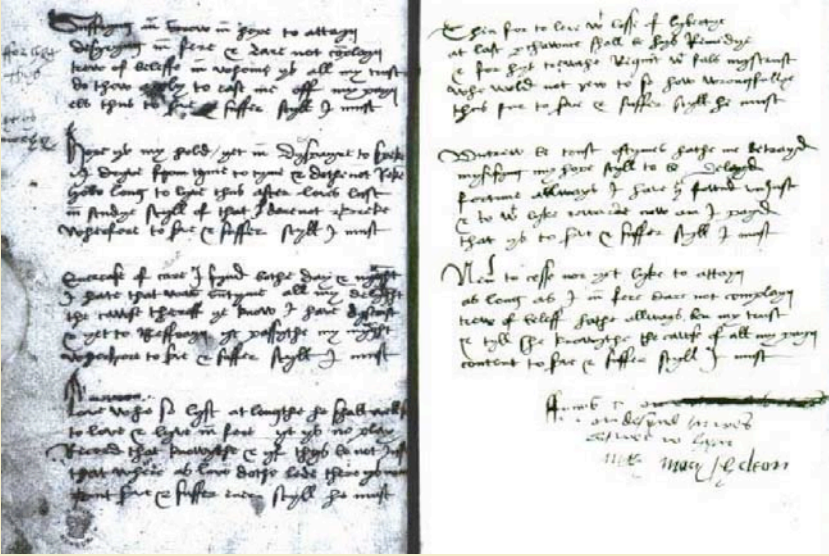 for get
thys
Suffryng in sorow in hope to attayn
desyryng in fere & dare not complayn
trew of beleffe in whome ys all my trust
do thow apply to ease me off my payn
els thus to serve & suffer styll I must
hope ys my hold / yet in dyspayre to speke
I dryve from tyme to tyme & dothe not Reke
how long to lyve thus after loves lust
in studye styll of that I dare not breke
wherefore to serve & suffer styll I must
Encrease of care I fynd bothe day & nyght
I hate that was sumtyme all my delyght
the cawse theroff ye know I have dyscust
& yet to Reffrayn yt passythe my myght
wherfore to serve & suffer styll I must
love who so lyst at lengthe he shall well
to love & lyve in fere yt ys no play
Record that knowythe & yf thys be not Just
that where as love dothe lede there
but serve & suffer ever styll he must
Then for to leve wt losse of lybertye
at last perchawnce shall be hys Remedye
& for hys trewthe Requit wt fals mystrust
who wold not rew to se how wrongfullye
thus for to serve & suffer styll he must
Untrew be trust oftymes hathe me betrayd
mysusyng my hope styll to be delayd
fortune allways I have ye fownd unJust
& so wt lyke rewarde now am I payd
that ys to serve & suffer styll I must
Never to cesse nor yet lyke to attayn
as long as I in fere dare not complayn
trew of beleff hathe allways ben my trust
& tyll she knowythe the cawse of all my payn
content to serve & suffer styll I must
ondesyard
mary shelton